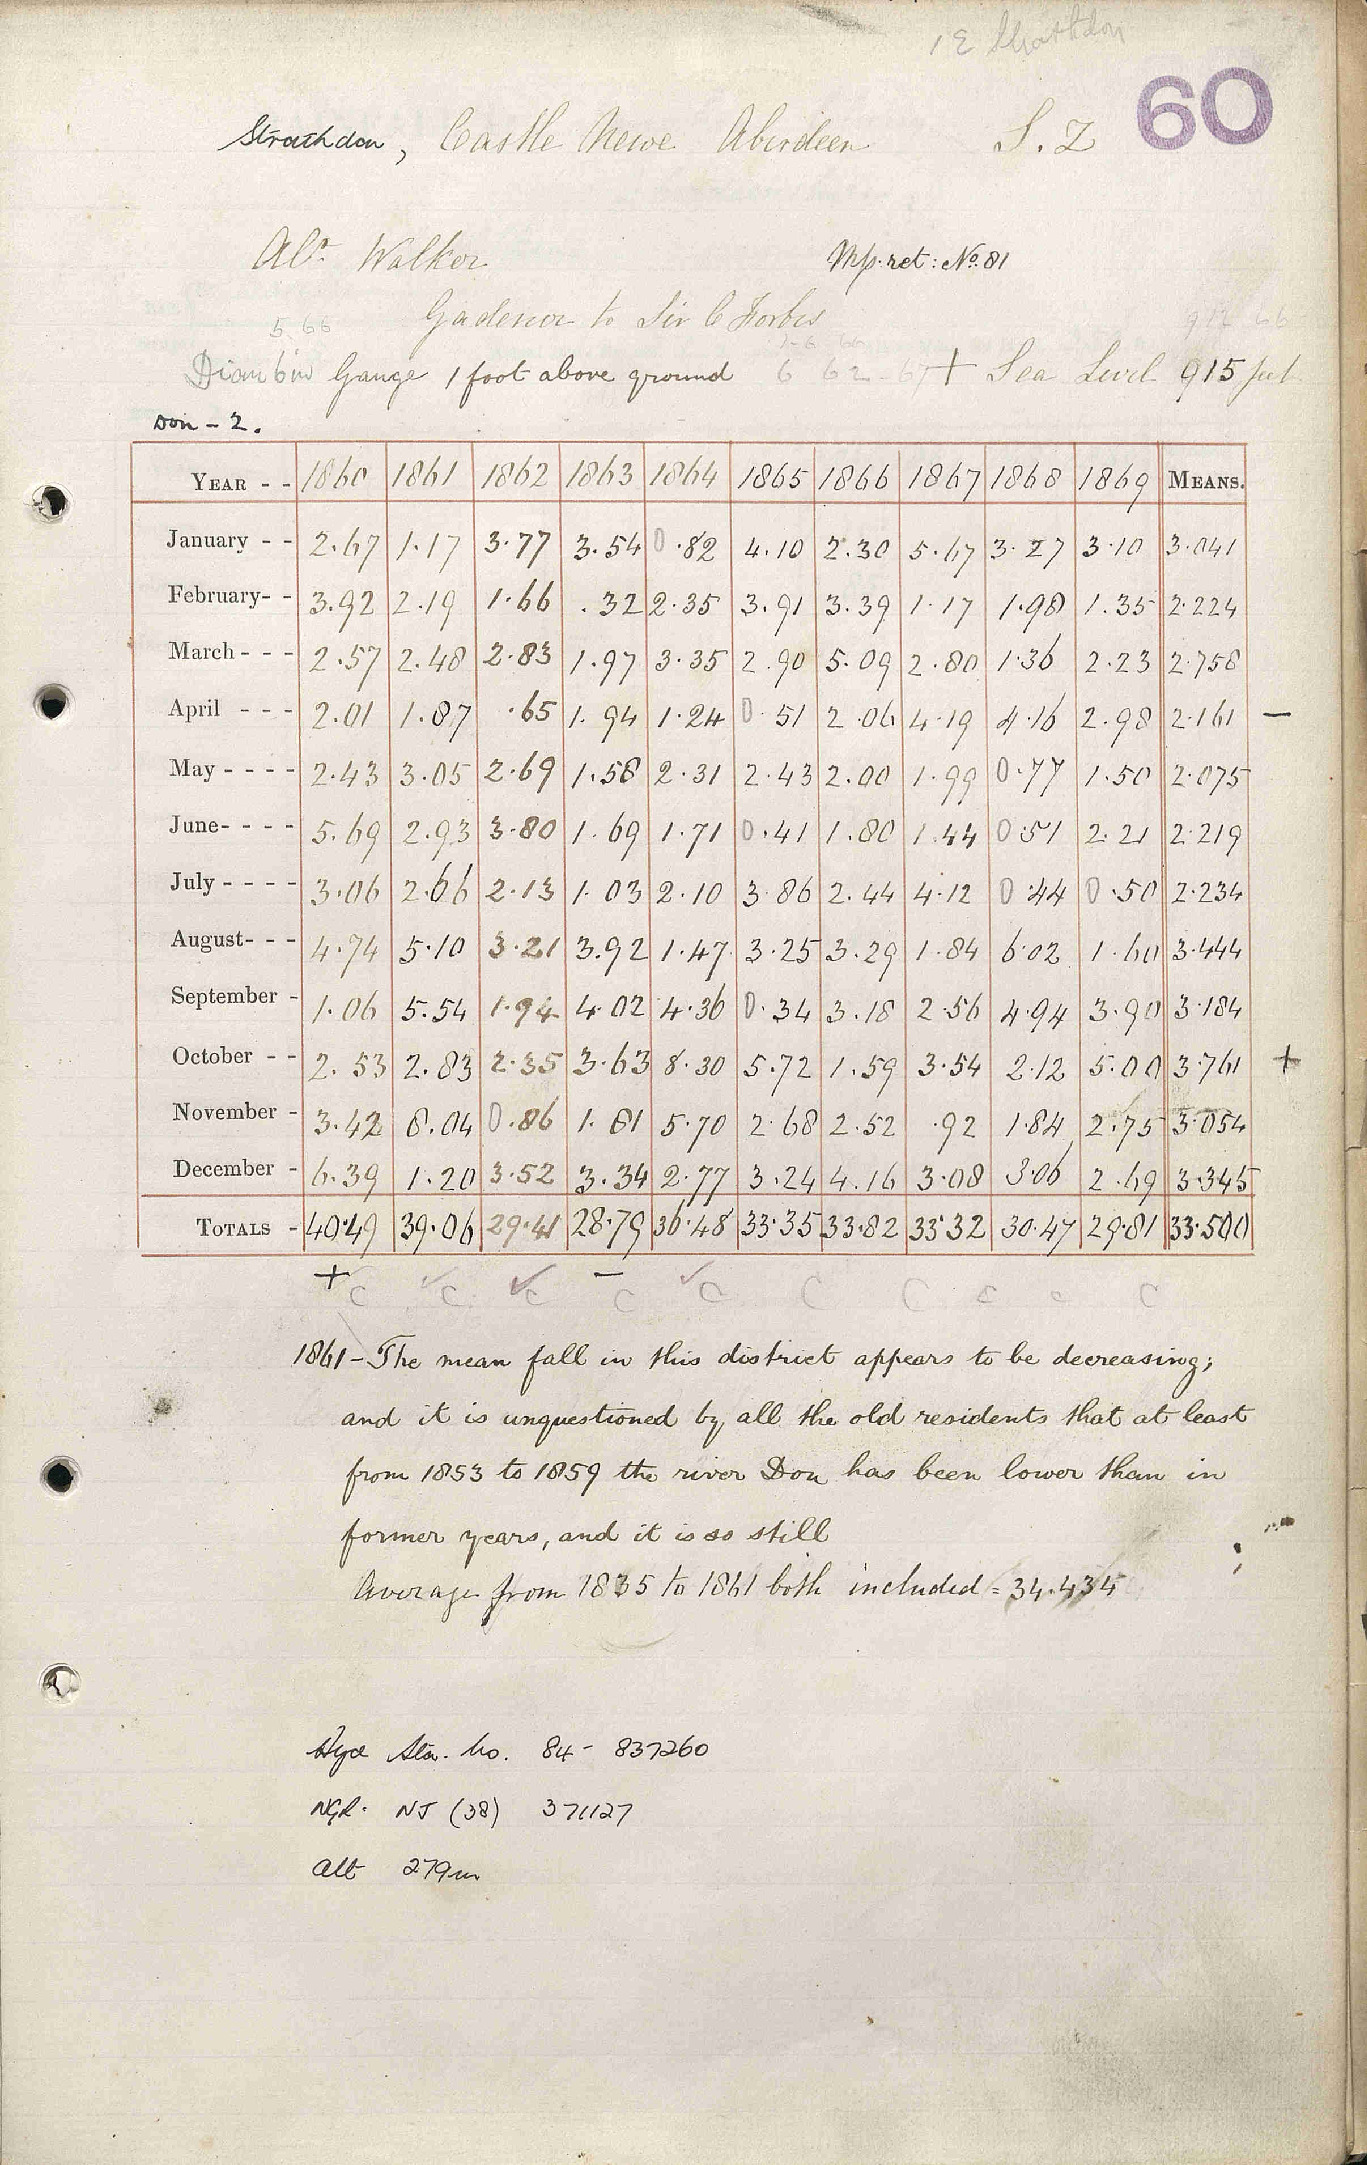 1 E Strathdon
60
Strathdon, Castle Newe Aberdeen S. Z
Alr. Walker Mp. ret: No. 81
Gadenor to Sir C Forbes
5 66
Diam 6 in Gauge 1 foot above ground 6 62-67 + Sea Level 915 feet
Don - 2.
YEAR - - 1860 1861 1862 1863 1864 1865 1866 1867 1868 1869 MEANS.
January - - 2.67 1.17 3.77 3.54 0.82 4.10 2.30 5.67 3.27 3.10 3.041
February- - 3.92 2.19 1.66 .32 2.35 3.91 3.39 1.17 1.98 1.35 2.224
March - - - 2.57 2.48 2.83 1.97 3.35 2.90 5.09 2.80 1.36 2.23 2.758
April - - - 2.01 1.87 .65 1.94 1.24 0.51 2.06 4.19 4.16 2.98 2.161 —
May - - - - 2.43 3.05 2.69 1.58 2.31 2.43 2.00 1.99 0.77 1.50 2.075
June- - - - 5.69 2.93 3.80 1.69 1.71 0.41 1.80 1.44 0.51 2.21 2.219
July - - - - 3.06 2.66 2.13 1.03 2.10 3.86 2.44 4.12 0.44 0.50 2.234
August- - - 4.74 5.10 3.21 3.92 1.47 3.25 3.29 1.84 6.02 1.60 3.444
September - 1.06 5.54 1.94 4.02 4.36 0.34 3.18 2.56 4.94 3.90 3.184
October - - 2.53 2.83 2.35 3.63 8.30 5.72 1.59 3.54 2.12 5.00 3.761 +
November - 3.42 8.04 0.86 1.81 5.70 2.68 2.52 .92 1.84 2.75 3.054
December - 6.39 1.20 3.52 3.34 2.77 3.24 4.16 3.08 3.06 2.69 3.345
TOTALS - 40.49 39.06 29.41 28.79 36.48 33.35 33.82 33.32 30.47 29.81 33.500
+ C ✓ C ✓ C — C ✓ C C C C C C
1861 - The mean fall in this district appears to be decreasing;
and it is unquestioned by all the old residents that at least
from 1853 to 1859 the river Don has been lower than in
former years, and it is so still
Average from 1835 to 1861 both included = 34.434
Hyd Stn. No. 84 - 837260
NGR. NJ (38) 371127
Alt 279m